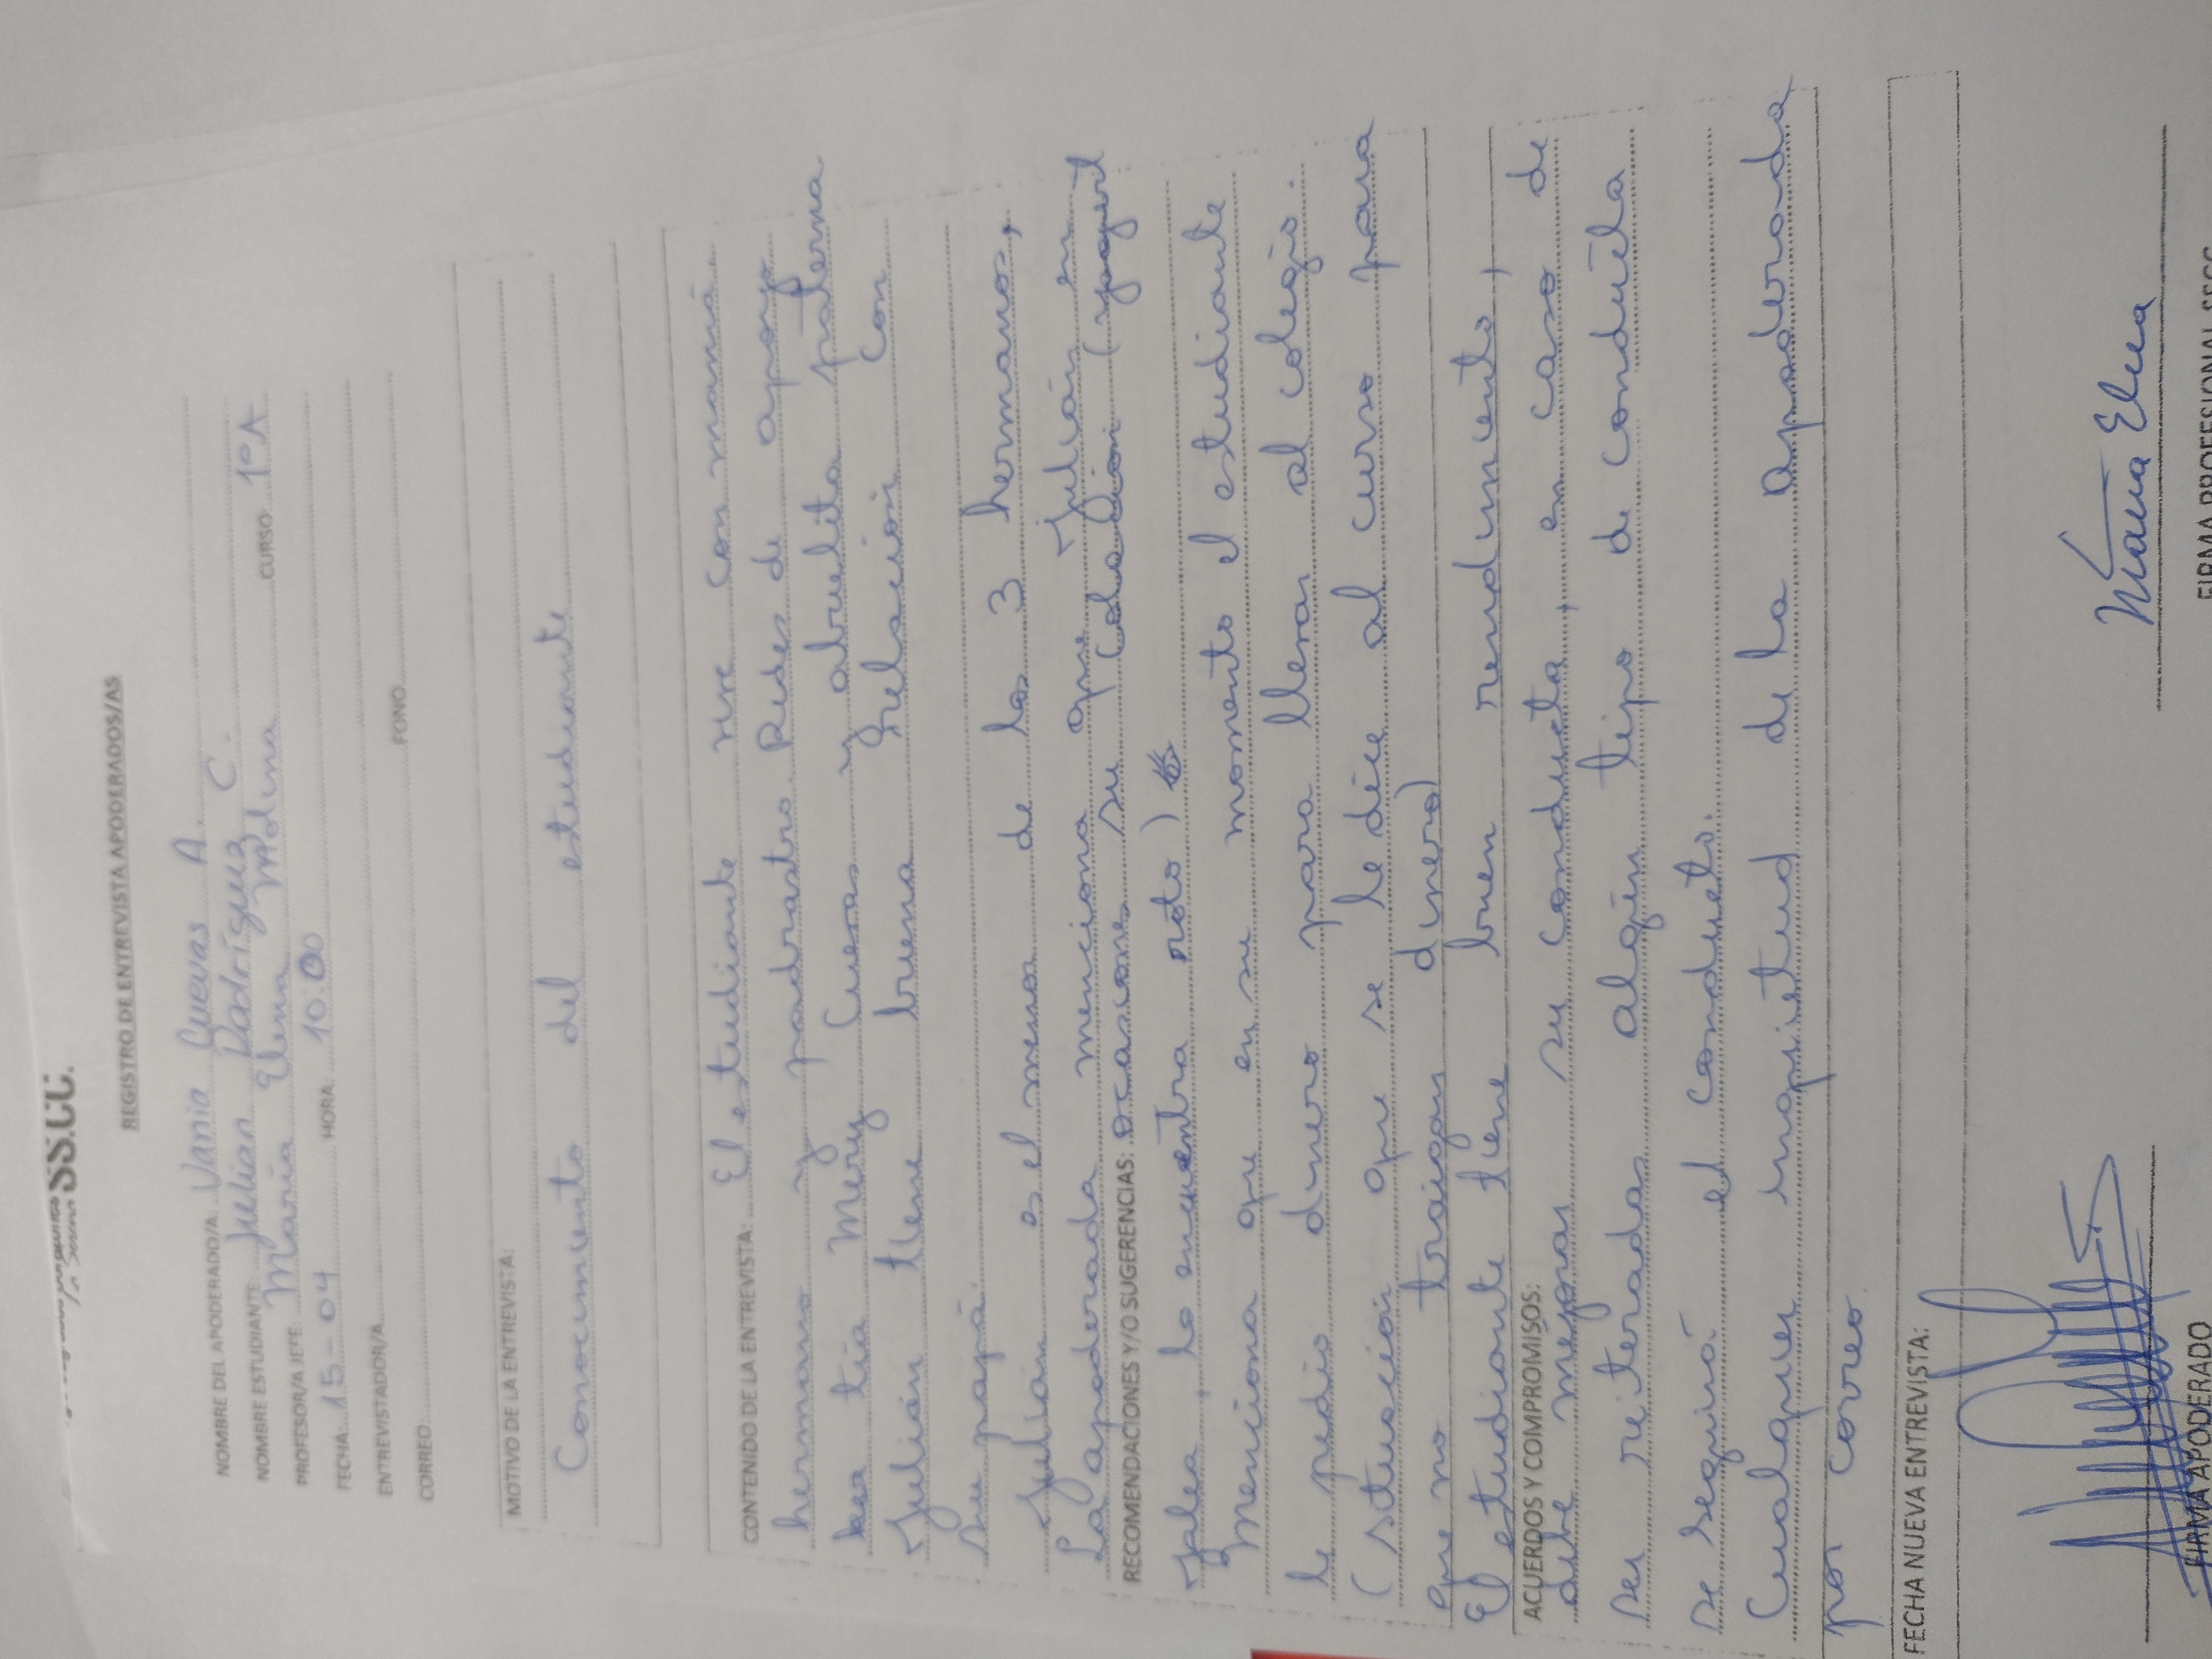 SS.CC.
La Serena
REGISTRO DE ENTREVISTA APODERADOS/AS
NOMBRE DEL APODERADO/A: Vania Cuevas A.
NOMBRE ESTUDIANTE Julian Rodríguez C. CURSO 1°A
PROFESOR/A JEFE: María Elena Molina
FECHA: 15-04 HORA 10:00
ENTREVISTADOR/A
CORREO FONO
MOTIVO DE LA ENTREVISTA:
Conocimiento del estudiante
CONTENIDO DE LA ENTREVISTA: El estudiante vive con mamá
hermano y padrastro. Redes de apoyo
tia Mery Cuevas y abuelita paterna
Julián tiene buena relación con
su papá.
Julián es el menor de los 3 hermanos,
La apoderada menciona que Julián en
RECOMENDACIONES Y/O SUGERENCIAS: ocasiones su colación (yogurt
Jalea, lo encuentra roto)
Menciona que en su momento el estudiante
le pedio dinero para llevar al colegio.
(situación que se le dice al curso para
que no traigan dinero)
El estudiante tiene buen rendimiento,
ACUERDOS Y COMPROMISOS:
debe mejorar su conducta, en caso de
ser reiteradas algún tipo de conducta
se seguirá el conducto.
Cualquier inquietud de la apoderada
por correo.
FECHA NUEVA ENTREVISTA:
FIRMA APODERADO
María Elena
FIRMA PROFESIONAL SSCC